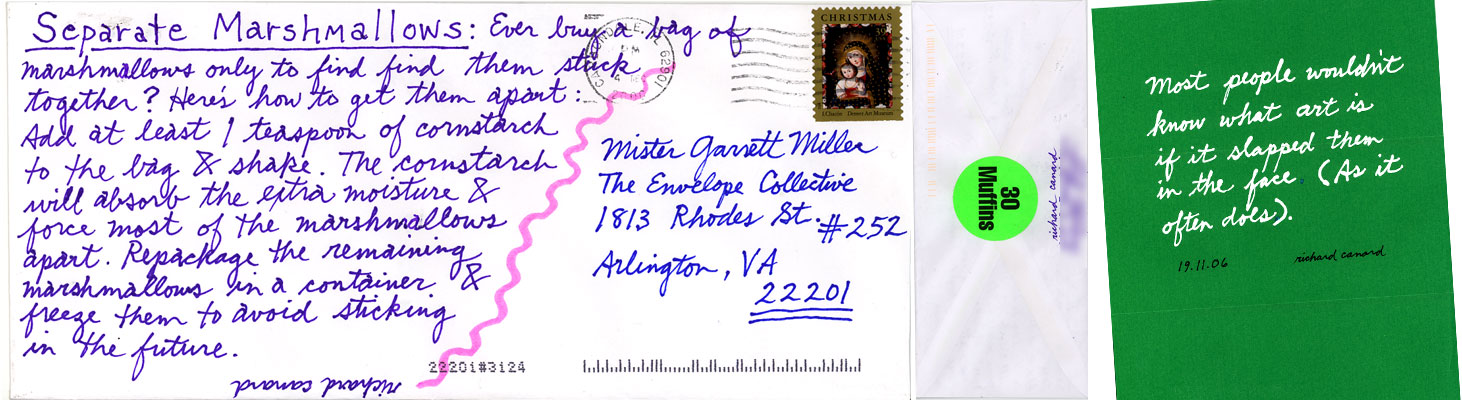 Separate Marshmallows: Ever buy a bag of
marshmallows only to find find them stuck
together? Here's how to get them apart:
Add at least 1 teaspoon of cornstarch
to the bag & shake. The cornstarch
will absorb the extra moisture &
force most of the marshmallows
apart. Repackage the remaining
marshmallows in a container &
freeze them to avoid sticking
in the future.
richard canard
62901
CHRISTMAS
Denver Art Museum
Mister Garrett Miller
The Envelope Collective
1813 Rhodes St. #252
Arlington, VA
22201
22201#3124
30
Muffins
richard canard
Most people wouldn't
know what art is
if it slapped them
in the face. (As it
often does).
19.11.06
richard canard